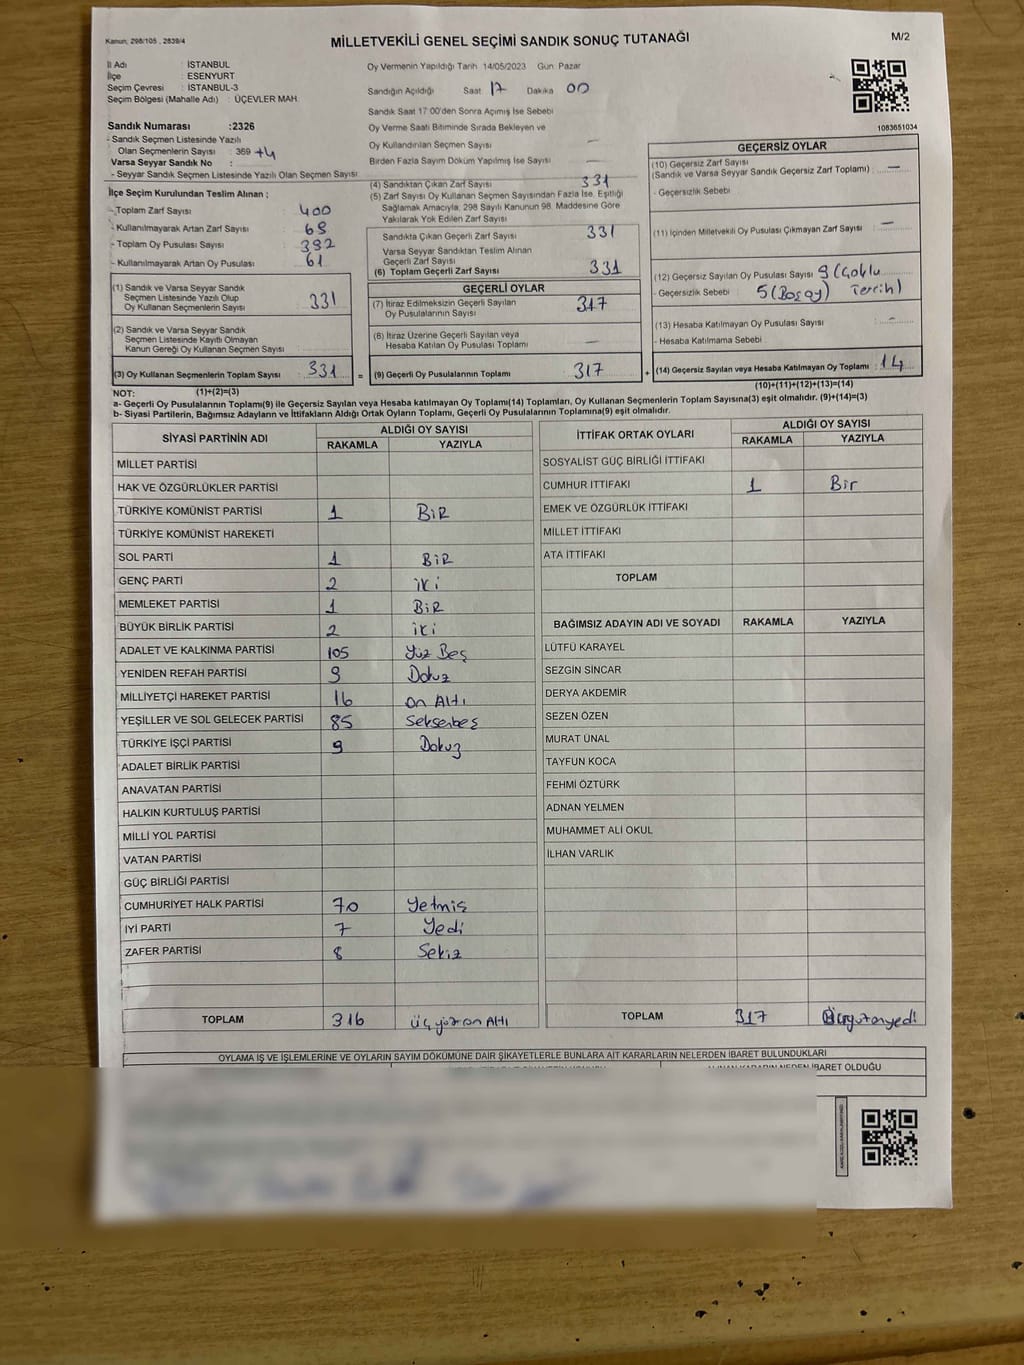 Kanun, 298/105 , 2839/4
MİLLETVEKİLİ GENEL SEÇİMİ SANDIK SONUÇ TUTANAĞI
M/2
İl Adı : İSTANBUL
İlçe : ESENYURT
Seçim Çevresi : İSTANBUL-3
Seçim Bölgesi (Mahalle Adı) : ÜÇEVLER MAH.
Sandık Numarası :2326
- Sandık Seçmen Listesinde Yazılı
Olan Seçmenlerin Sayısı : 369 +4
Varsa Seyyar Sandık No :
- Seyyar Sandık Seçmen Listesinde Yazılı Olan Seçmen Sayısı
İlçe Seçim Kurulundan Teslim Alınan ;
- Toplam Zarf Sayısı : 400
- Kullanılmayarak Artan Zarf Sayısı : 69
- Toplam Oy Pusulası Sayısı : 392
- Kullanılmayarak Artan Oy Pusulası : 61
(1) Sandık ve Varsa Seyyar Sandık
Seçmen Listesinde Yazılı Olup
Oy Kullanan Seçmenlerin Sayısı : 331
(2) Sandık ve Varsa Seyyar Sandık
Seçmen Listesinde Kayıtlı Olmayan
Kanun Gereği Oy Kullanan Seçmen Sayısı
(3) Oy Kullanan Seçmenlerin Toplam Sayısı : 331 =
Oy Vermenin Yapıldığı Tarih 14/05/2023 Gün Pazar
Sandığın Açıldığı Saat 17 Dakika 00
Sandık Saat 17:00'den Sonra Açımış İse Sebebi
Oy Verme Saati Bitiminde Sırada Bekleyen ve
Oy Kullandırılan Seçmen Sayısı —
Birden Fazla Sayım Döküm Yapılmış İse Sayısı —
(4) Sandıktan Çıkan Zarf Sayısı 331
(5) Zarf Sayısı Oy Kullanan Seçmen Sayısından Fazla İse, Eşitliği
Sağlamak Amacıyla; 298 Sayılı Kanunun 98. Maddesine Göre
Yakılarak Yok Edilen Zarf Sayısı
Sandıkta Çıkan Geçerli Zarf Sayısı 331
Varsa Seyyar Sandıktan Teslim Alınan
Geçerli Zarf Sayısı
(6) Toplam Geçerli Zarf Sayısı 331
GEÇERLİ OYLAR
(7) İtiraz Edilmeksizin Geçerli Sayılan
Oy Pusulalarının Sayısı : 317
(8) İtiraz Üzerine Geçerli Sayılan veya
Hesaba Katılan Oy Pusulası Toplamı —
(9) Geçerli Oy Pusulalarının Toplamı 317 +
1083651034
GEÇERSİZ OYLAR
(10) Geçersiz Zarf Sayısı
(Sandık ve Varsa Seyyar Sandık Geçersiz Zarf Toplamı) —
- Geçersizlik Sebebi
(11) İçinden Milletvekili Oy Pusulası Çıkmayan Zarf Sayısı —
(12) Geçersiz Sayılan Oy Pusulası Sayısı 9 (Çoklu
- Geçersizlik Sebebi : 5 (Boş oy) Tercih)
(13) Hesaba Katılmayan Oy Pusulası Sayısı : -
- Hesaba Katılmama Sebebi
(14) Geçersiz Sayılan veya Hesaba Katılmayan Oy Toplamı : 14
NOT: (1)+(2)=(3)
(10)+(11)+(12)+(13)=(14)
a- Geçerli Oy Pusulalarının Toplamı(9) ile Geçersiz Sayılan veya Hesaba Katılmayan Oy Toplamı(14) Toplamları, Oy Kullanan Seçmenlerin Toplam Sayısına(3) eşit olmalıdır. (9)+(14)=(3)
b- Siyasi Partilerin, Bağımsız Adayların ve İttifakların Aldığı Ortak Oyların Toplamı, Geçerli Oy Pusulalarının Toplamına(9) eşit olmalıdır.
SİYASİ PARTİNİN ADI
ALDIĞI OY SAYISI
RAKAMLA YAZIYLA
MİLLET PARTİSİ
HAK VE ÖZGÜRLÜKLER PARTİSİ
TÜRKİYE KOMÜNİST PARTİSİ 1 BİR
TÜRKİYE KOMÜNİST HAREKETİ
SOL PARTİ 1 BİR
GENÇ PARTİ 2 İKİ
MEMLEKET PARTİSİ 1 BİR
BÜYÜK BİRLİK PARTİSİ 2 İKİ
ADALET VE KALKINMA PARTİSİ 105 Yüz Beş
YENİDEN REFAH PARTİSİ 9 Dokuz
MİLLİYETÇİ HAREKET PARTİSİ 16 on Altı
YEŞİLLER VE SOL GELECEK PARTİSİ 85 Seksenbeş
TÜRKİYE İŞÇİ PARTİSİ 9 Dokuz
ADALET BİRLİK PARTİSİ
ANAVATAN PARTİSİ
HALKIN KURTULUŞ PARTİSİ
MİLLİ YOL PARTİSİ
VATAN PARTİSİ
GÜÇ BİRLİĞİ PARTİSİ
CUMHURİYET HALK PARTİSİ 70 Yetmiş
İYİ PARTİ 7 Yedi
ZAFER PARTİSİ 8 Sekiz
TOPLAM 316 üç yüz on Altı
İTTİFAK ORTAK OYLARI
ALDIĞI OY SAYISI
RAKAMLA YAZIYLA
SOSYALİST GÜÇ BİRLİĞİ İTTİFAKI
CUMHUR İTTİFAKI 1 Bir
EMEK VE ÖZGÜRLÜK İTTİFAKI
MİLLET İTTİFAKI
ATA İTTİFAKI
TOPLAM
BAĞIMSIZ ADAYIN ADI VE SOYADI RAKAMLA YAZIYLA
LÜTFÜ KARAYEL
SEZGİN SİNCAR
DERYA AKDEMİR
SEZEN ÖZEN
MURAT ÜNAL
TAYFUN KOCA
FEHMİ ÖZTÜRK
ADNAN YELMEN
MUHAMMET ALİ OKUL
İLHAN VARLIK
TOPLAM 317 Üçyüzonyedi
OYLAMA İŞ VE İŞLEMLERİNE VE OYLARIN SAYIM DÖKÜMÜNE DAİR ŞİKAYETLERLE BUNLARA AİT KARARLARIN NELERDEN İBARET BULUNDUKLARI
İBARET OLDUĞU